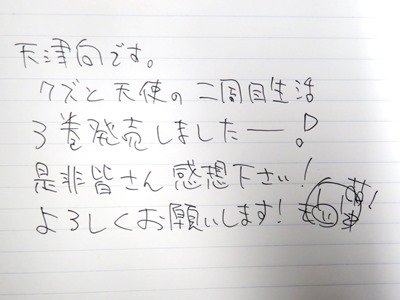 天津向です。
クズと天使の二周目生活
3巻発売しましたー!
是非皆さん感想下さい!
よろしくお願いします!